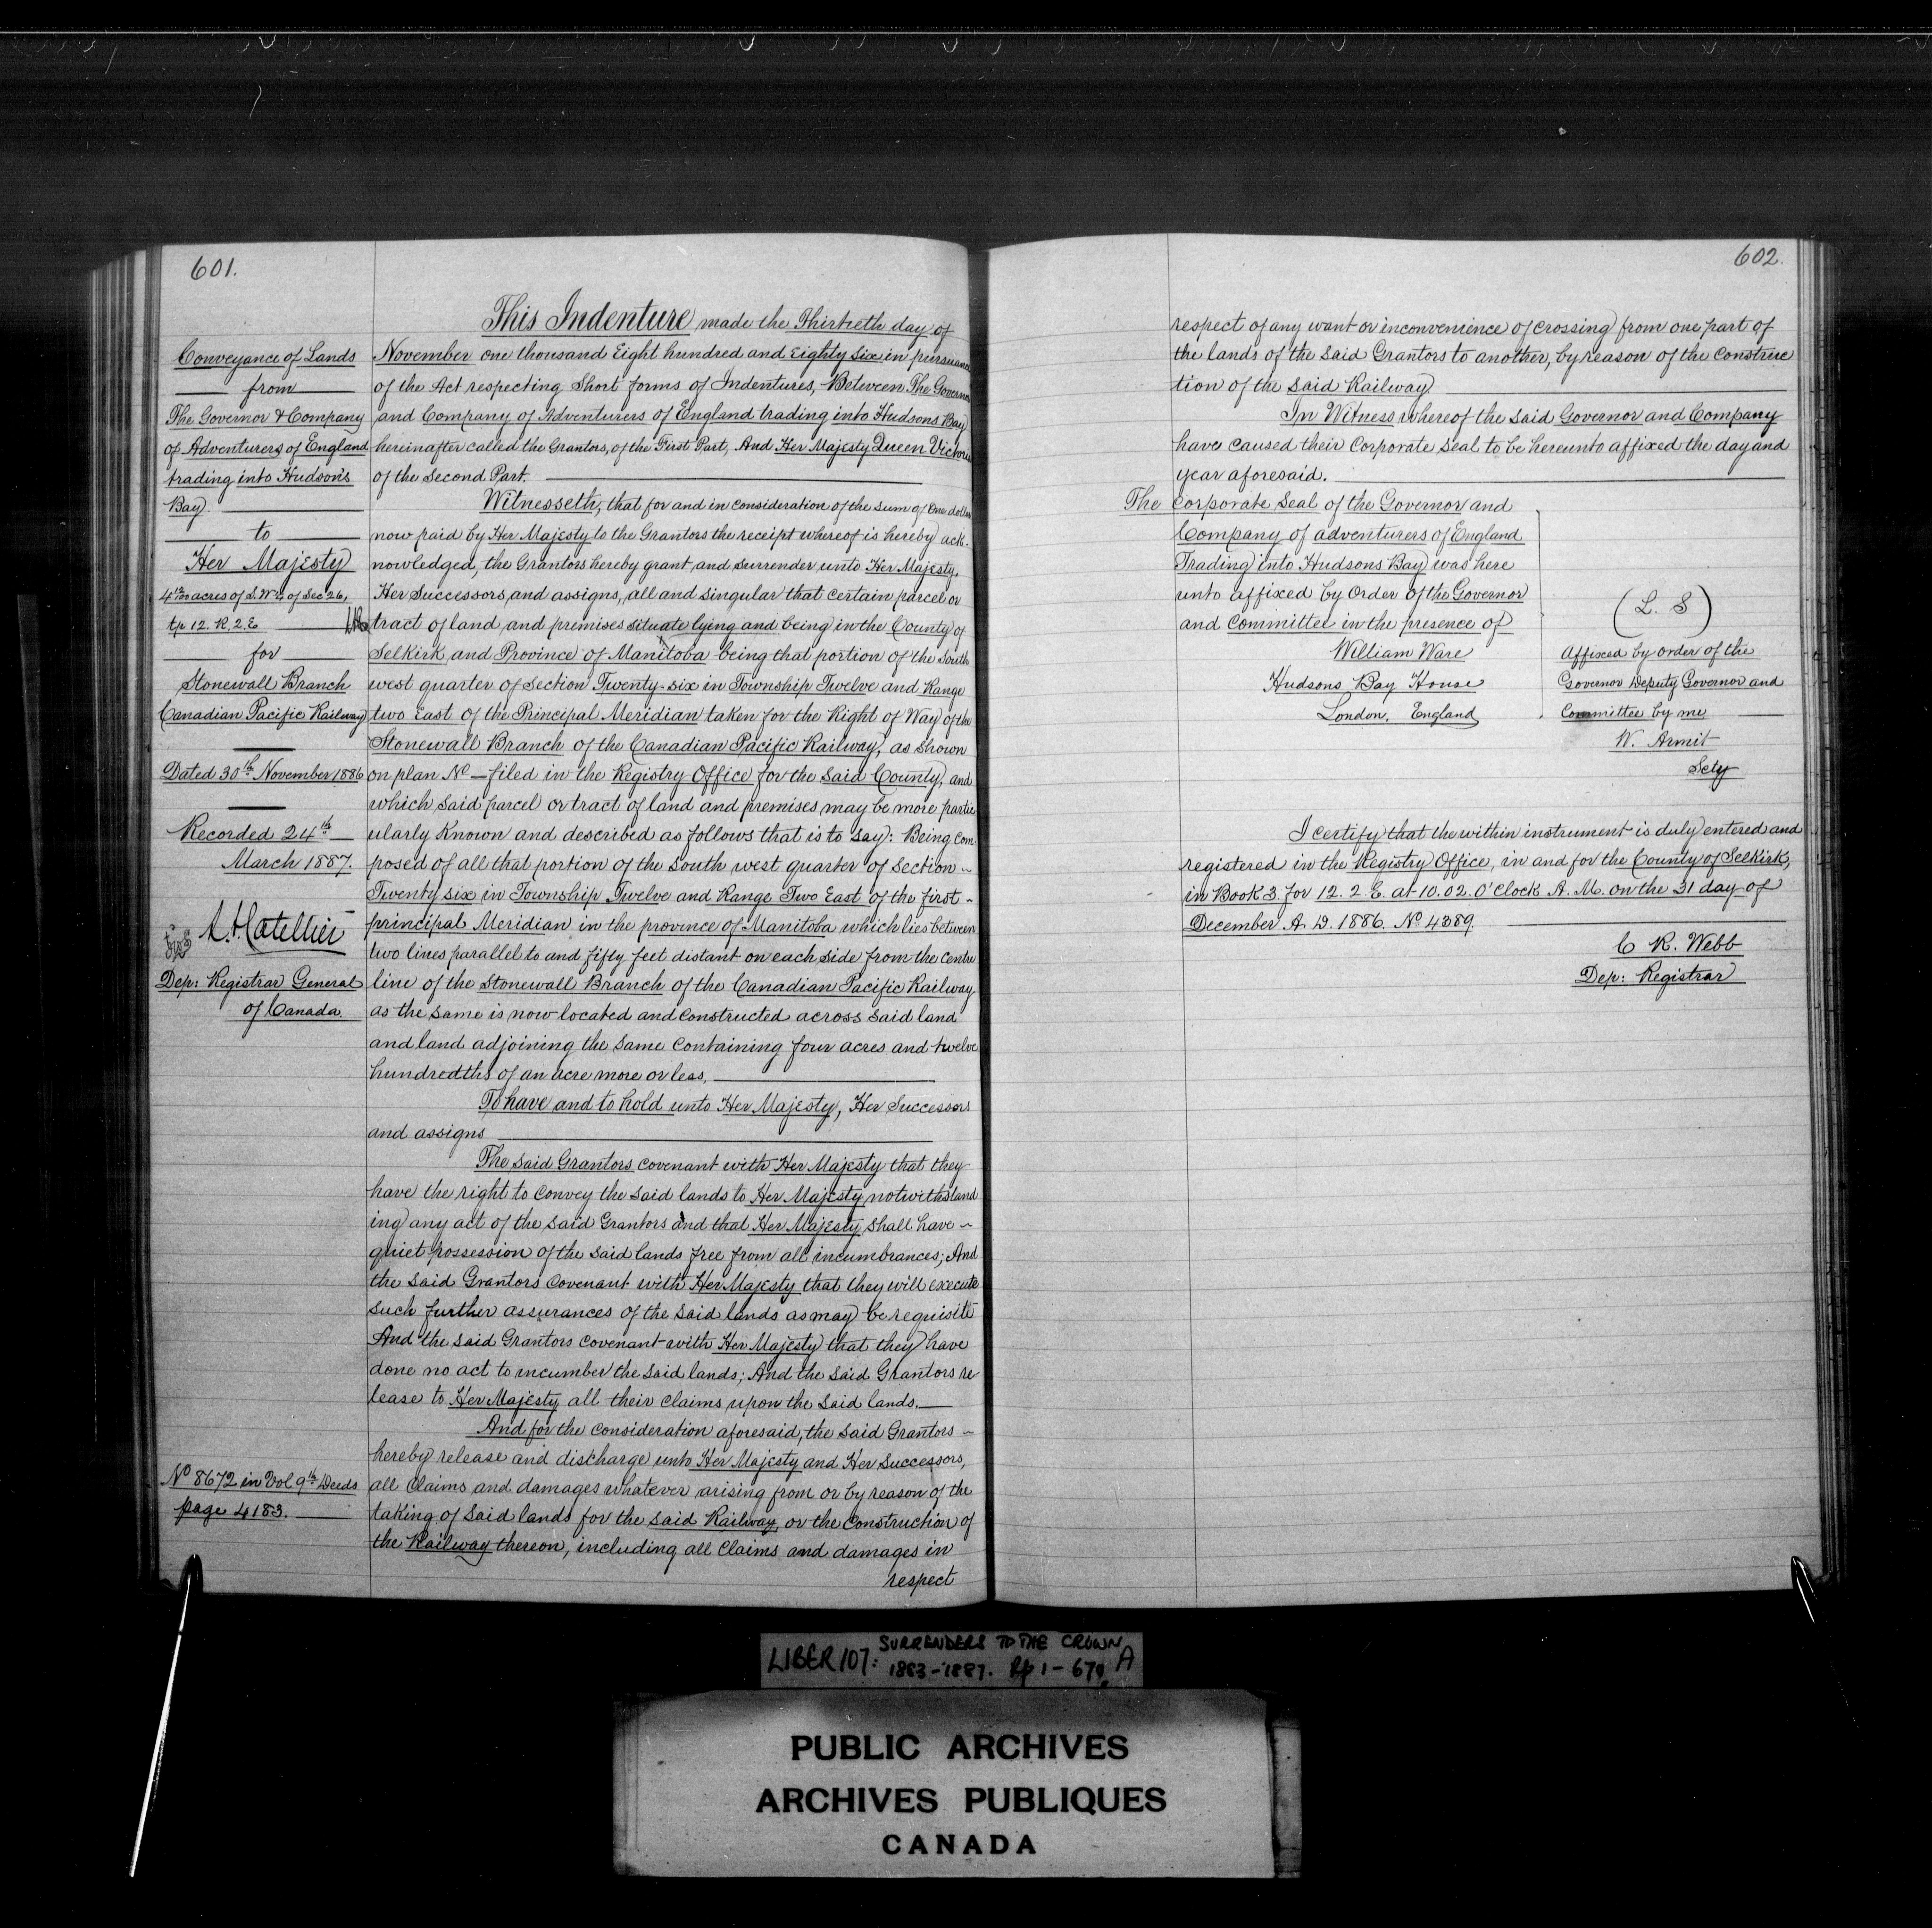 601.
Conveyance of Lands
from
The Governor & Company
of Adventurers of England
trading into Hudson's
Bay.
to
Her Majesty
4 12/100 acres of S.W¼ of Sec 26,
tp 12. R. 2. E
for
Stonewall Branch
Canadian Pacific Railway
Dated 30th November 1886
Recorded 24th
March 1887.
Dep: Registrar General
of Canada.
No 8672 in Vol 9th Deeds
page 4183.
This Indenture made the Thirtieth day of
November one thousand Eight hundred and Eighty six in pursuance
of the Act respecting Short forms of Indentures, Between The Governor
and Company of Adventurers of England trading into Hudsons Bay
hereinafter called the Grantors, of the First Part, And Her Majesty Queen Victoria
of the Second Part.
Witnesseth, that for and in consideration of the sum of One dollar
now paid by Her Majesty to the Grantors the receipt whereof is hereby ack-
nowledged, the Grantors hereby grant, and surrender unto Her Majesty,
Her Successors, and assigns, all and singular that certain parcel or
tract of land, and premises situate lying and being in the County of
Selkirk, and Province of Manitoba being that portion of the South
west quarter of Section Twenty-six in Township Twelve and Range
two East of the Principal Meridian taken for the Right of Way of the
Stonewall Branch of the Canadian Pacific Railway, as shown
on plan No — filed in the Registry Office for the said County, and
which said parcel or tract of land and premises may be more partic
ularly Known and described as follows that is to say: Being com-
posed of all that portion of the South west quarter of Section
Twenty six in Township Twelve and Range Two East of the first
principal Meridian in the province of Manitoba which lies between
two lines parallel to and fifty feet distant on each side from the centre
line of the Stonewall Branch of the Canadian Pacific Railway
as the same is now located and constructed across said land
and land adjoining the same containing four acres and twelve
hundredths of an acre more or less.
To have and to hold unto Her Majesty, Her Successors
and assigns
The said Grantors covenant with Her Majesty that they
have the right to convey the said lands to Her Majesty notwithstand
ing any act of the said Grantors and that Her Majesty shall have
quiet possession of the said lands free from all incumbrances; And
the said Grantors Covenant with Her Majesty that they will execute
such further assurances of the said lands as may be requisite
And the said Grantors covenant with Her Majesty that they have
done no act to incumber the said lands; And the said Grantors re
lease to Her Majesty all their claims upon the said lands.
And for the consideration aforesaid, the said Grantors
hereby release and discharge unto Her Majesty and Her Successors,
all Claims and damages whatever arising from or by reason of the
taking of said lands for the said Railway, or the Construction of
the Railway thereon, including all Claims and damages in
respect
602.
respect of any want or inconvenience of crossing from one part of
the lands of the said Grantors to another, by reason of the Construc
tion of the said Railway
In Witness whereof the said Governor and Company
have caused their Corporate Seal to be hereunto affixed the day and
year aforesaid.
The Corporate Seal of the Governor and
Company of adventurers of England
Trading into Hudsons Bay was here
unto affixed by Order of the Governor
and Committee in the presence of
William Ware
Hudsons Bay House
London, England
(L. S)
affixed by order of the
Governor Deputy Governor and
Committee by me
W. Armit
Secty
I certify that the within instrument is duly entered and
registered in the Registry Office, in and for the County of Selkirk,
in Book 3 for 12. 2. E. at 10.02 O'Clock A. M. on the 31 day of
December A. D. 1886. No 4389.
C R. Webb
Dep: Registrar
LIBER 107: SURRENDERS TO THE CROWN A
1883-1887. Pp 1-670
PUBLIC ARCHIVES
ARCHIVES PUBLIQUES
CANADA